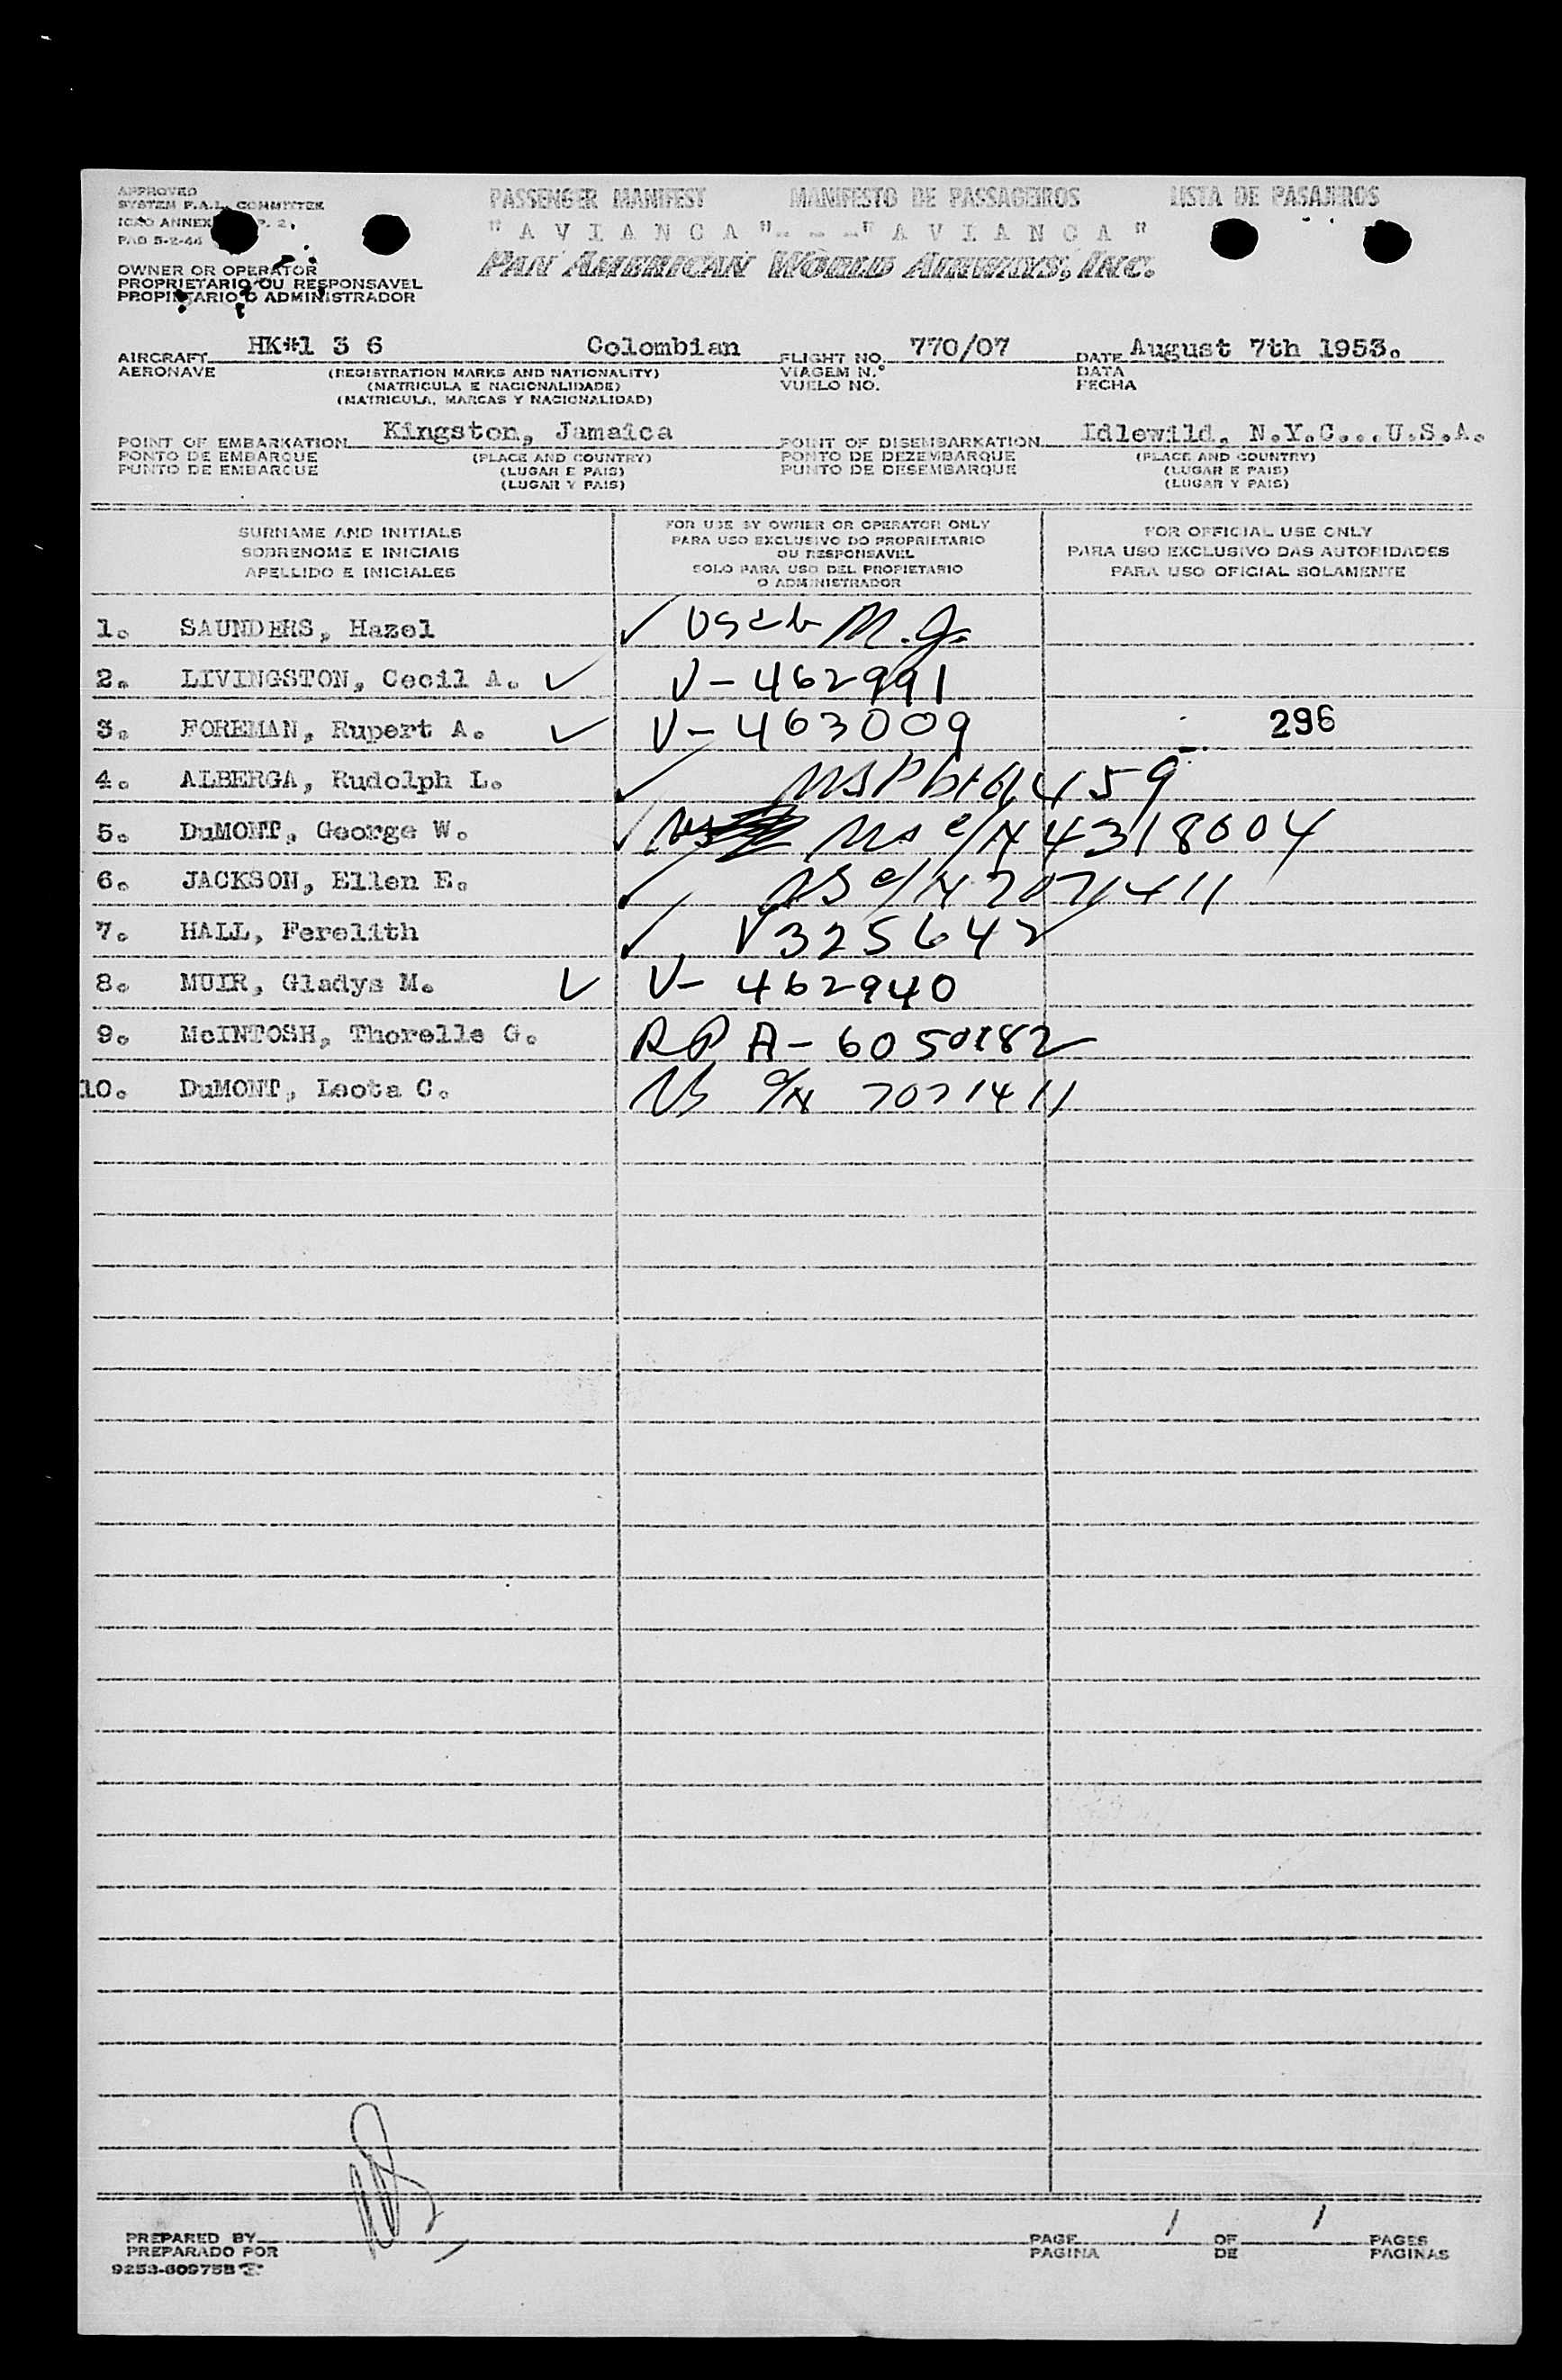 APPROVED
SYSTEM F.A.L. COMMITTEE
ICAO ANNEX P. 2,
PAD 5-2-44
PASSENGER MANIFEST MANIFESTO DE PASSAGEIROS LISTA DE PASAJEROS
"A V I A N C A"---"A V I A N C A"
PAN AMERICAN WORLD AIRWAYS, INC.
OWNER OR OPERATOR
PROPRIETARIO OU RESPONSAVEL
PROPIETARIO O ADMINISTRADOR
AIRCRAFT HK#1 3 6 Colombian FLIGHT NO. 770/07 DATE August 7th 1953.
AERONAVE (REGISTRATION MARKS AND NATIONALITY) VIAGEM N.° DATA
(MATRICULA E NACIONALIDADE) VUELO NO. FECHA
(MATRICULA, MARCAS Y NACIONALIDAD)
POINT OF EMBARKATION Kingston, Jamaica POINT OF DISEMBARKATION Idlewild, N.Y.C...U.S.A.
PONTO DE EMBARQUE (PLACE AND COUNTRY) PONTO DE DEZEMBARQUE (PLACE AND COUNTRY)
PUNTO DE EMBARQUE (LUGAR E PAIS) PUNTO DE DESEMBARQUE (LUGAR E PAIS)
(LUGAR Y PAIS) (LUGAR Y PAIS)
SURNAME AND INITIALS
SOBRENOME E INICIAIS
APELLIDO E INICIALES
FOR USE BY OWNER OR OPERATOR ONLY
PARA USO EXCLUSIVO DO PROPRIETARIO
OU RESPONSAVEL
SOLO PARA USO DEL PROPIETARIO
O ADMINISTRADOR
FOR OFFICIAL USE ONLY
PARA USO EXCLUSIVO DAS AUTORIDADES
PARA USO OFICIAL SOLAMENTE
1. SAUNDERS, Hazel ✓ M.J.
2. LIVINGSTON, Cecil A. ✓ V-462991
3. FOREMAN, Rupert A. ✓ V-463009 296
4. ALBERGA, Rudolph L. ✓
5. DuMONT, George W. ✓ 4318604
6. JACKSON, Ellen E. ✓ US c/N 7071411
7. HALL, Ferelith ✓ V325642
8. MUIR, Gladys M. ✓ V-462940
9. McINTOSH, Thorelle G. RP A-6050182
10. DuMONT, Leota C. US c/N 7071411
PREPARED BY PAGE 1 OF 1 PAGES
PREPARADO POR PAGINA DE PAGINAS
9253-60975B